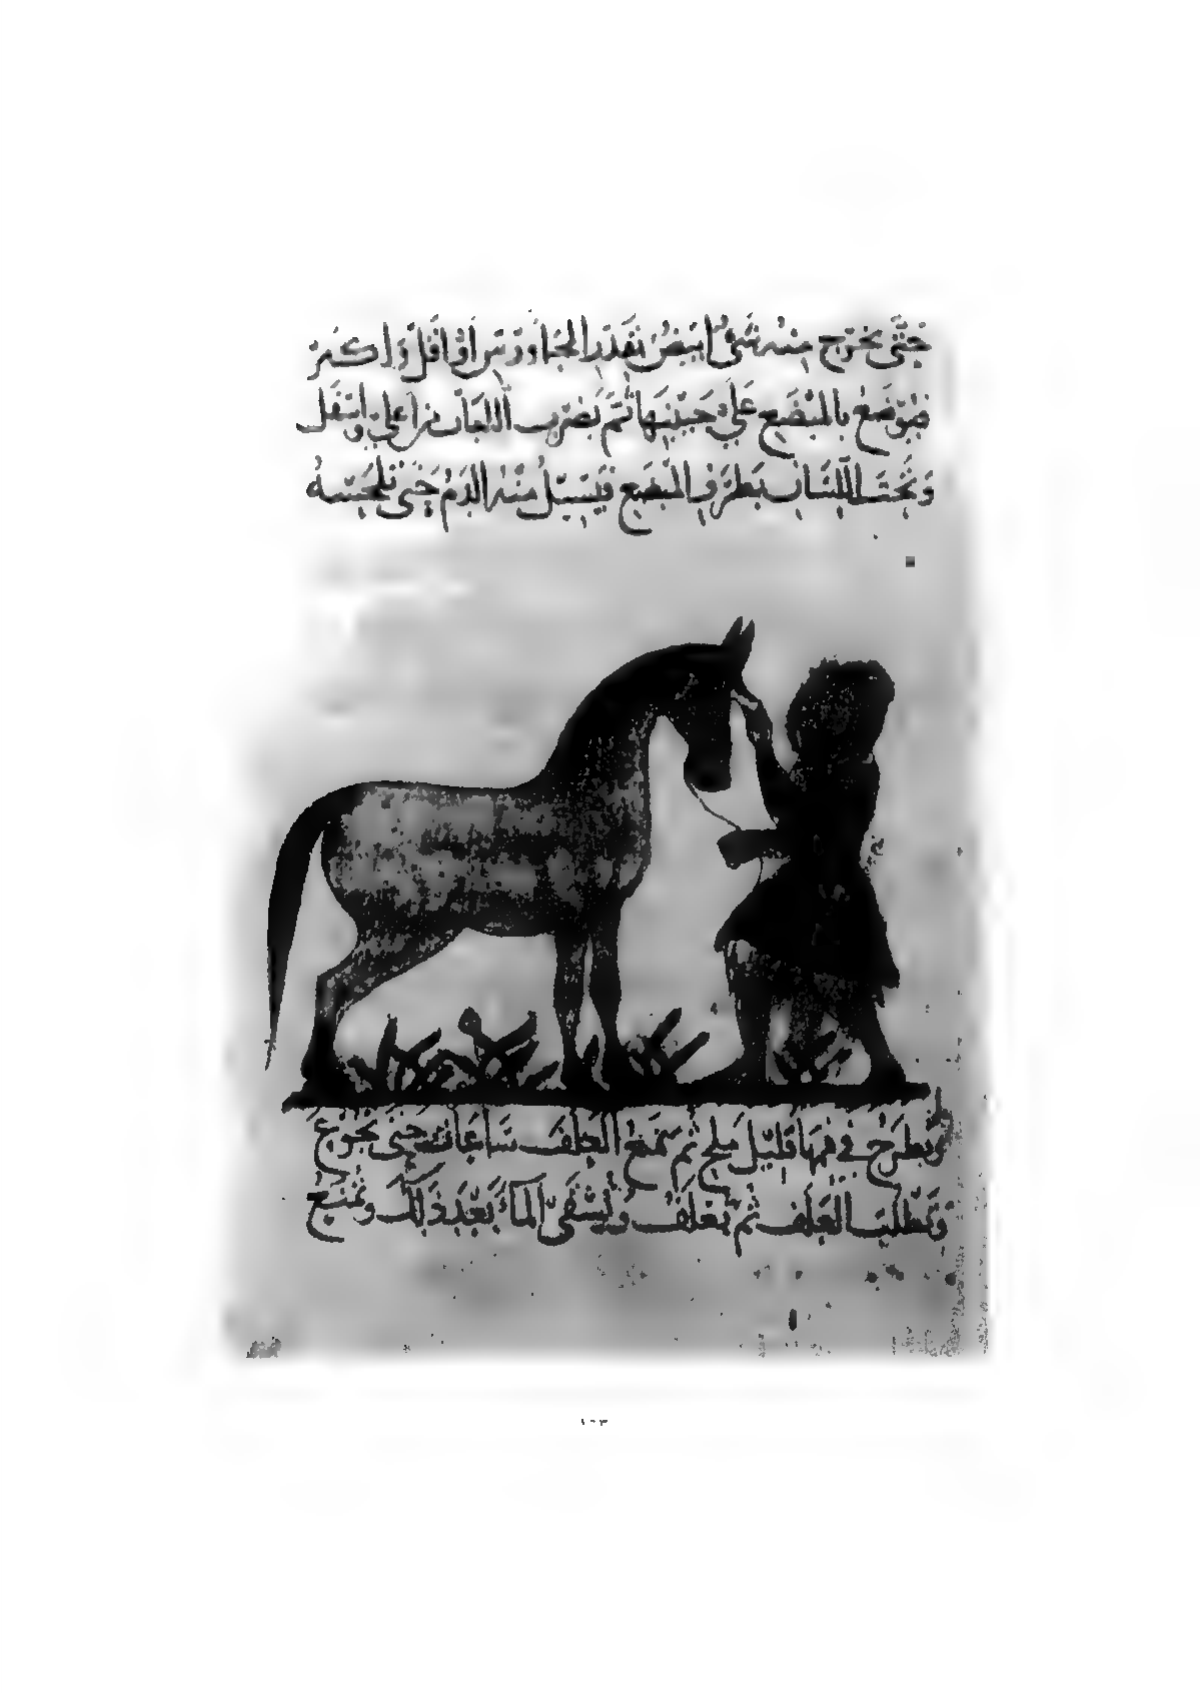 حَتَّى يَخرُج مِنْهُ شَىْءٌ ابيَضُ بِقَدرِ الجَاوَرْسِ اَوْ اَقَلّ وَاكبَرَ
فَيُوضَعُ بِالمِبْضَعِ عَلَى جَنْبَيهَا ثُمَّ يُضْرَب اللِّجَانِ مِن اَعلى وَاسْفَل
وَتَحْتَ اللِّسَان بِطَرَفِ المِبضَعِ فَيَسِيْلُ مِنْهُ الدَّمُ حَتَّى تَلْحَسَهُ
وَيُطرَحُ فى فمِهَا قَلِيْل مِلح ثم تمنَعُ العَلَف سَاعَات حَتَّى تَجُوْعَ
وَتَطْلُبَ العَلَف ثُمَّ تُعْلَفُ وَتُسْقَى المَاءَ بَعْدَ ذَلِكَ وَتُمنَعُ
١٠٣